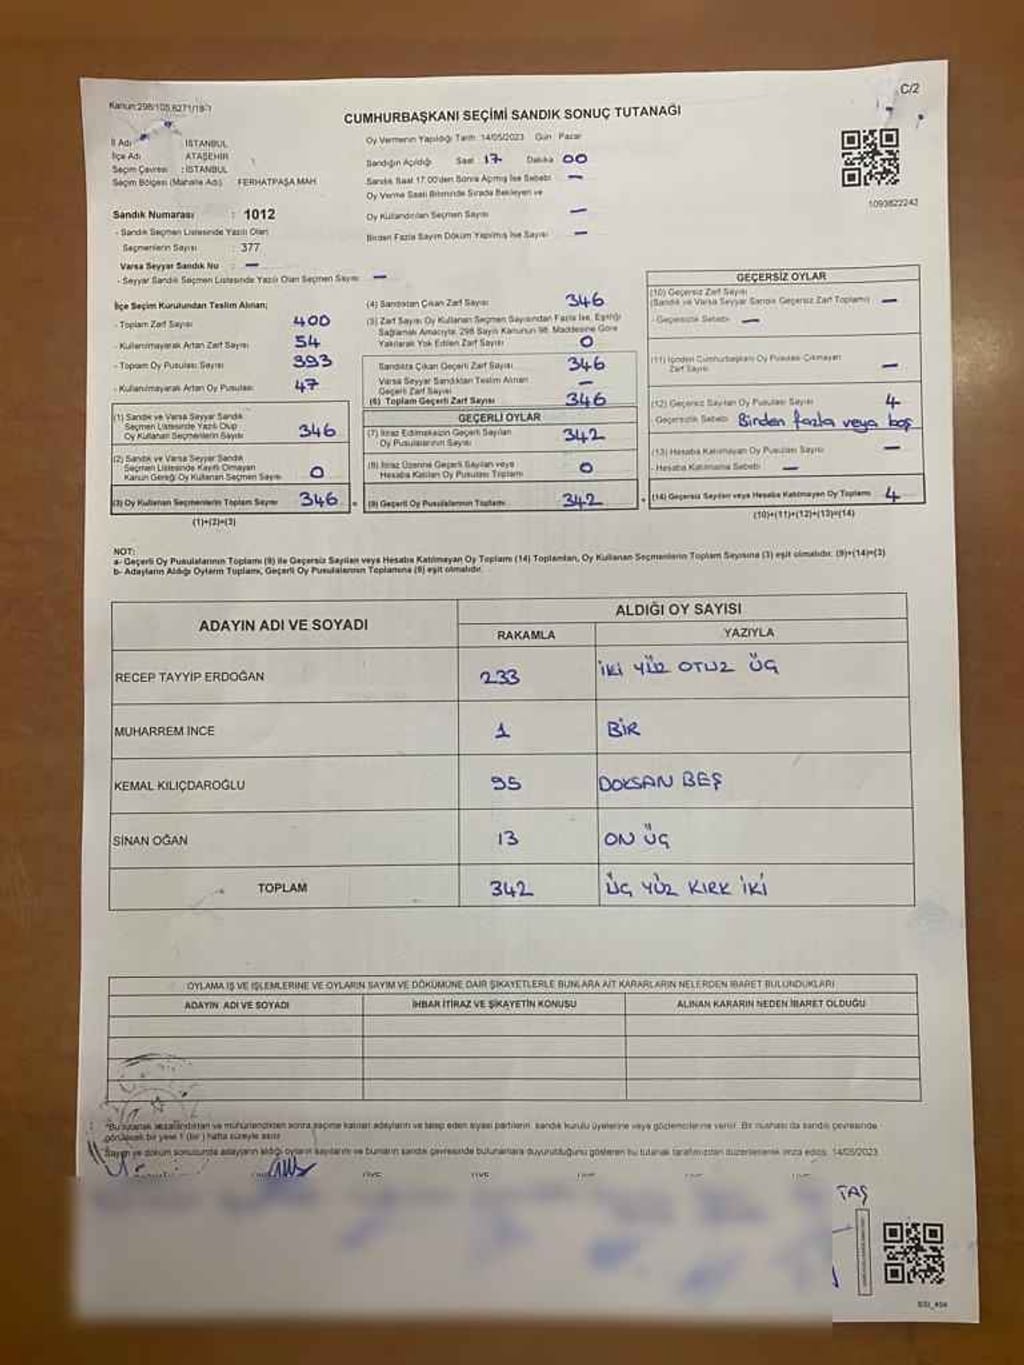 Kanun:298/105,6271/19-1
C/2
CUMHURBAŞKANI SEÇİMİ SANDIK SONUÇ TUTANAĞI
İl Adı : İSTANBUL
İlçe Adı : ATAŞEHİR
Seçim Çevresi : İSTANBUL
Seçim Bölgesi (Mahalle Adı) : FERHATPAŞA MAH.
Oy Vermenin Yapıldığı Tarih: 14/05/2023 Gün : Pazar
Sandığın Açıldığı Saat 17 Dakika 00
Sandık Saat 17.00'den Sonra Açmış İse Sebebi —
Oy Verme Saati Bitiminde Sırada Bekleyen ve
Oy Kullandırılan Seçmen Sayısı —
Birden Fazla Sayım Döküm Yapılmış İse Sayısı —
1093822242
Sandık Numarası : 1012
- Sandık Seçmen Listesinde Yazılı Olan
Seçmenlerin Sayısı : 377
Varsa Seyyar Sandık No : —
- Seyyar Sandık Seçmen Listesinde Yazılı Olan Seçmen Sayısı —
İlçe Seçim Kurulundan Teslim Alınan;
- Toplam Zarf Sayısı 400
- Kullanılmayarak Artan Zarf Sayısı 54
- Toplam Oy Pusulası Sayısı 393
- Kullanılmayarak Artan Oy Pusulası 47
(1) Sandık ve Varsa Seyyar Sandık
Seçmen Listesinde Yazılı Olup
Oy Kullanan Seçmenlerin Sayısı 346
(2) Sandık ve Varsa Seyyar Sandık
Seçmen Listesinde Kayıtlı Olmayan
Kanun Gereği Oy Kullanan Seçmen Sayısı 0
(3) Oy Kullanan Seçmenlerin Toplam Sayısı 346
(1)+(2)=(3)
(4) Sandıktan Çıkan Zarf Sayısı 346
(5) Zarf Sayısı Oy Kullanan Seçmen Sayısından Fazla İse, Eşitliği
Sağlamak Amacıyla, 298 Sayılı Kanunun 98. Maddesine Göre
Yakılarak Yok Edilen Zarf Sayısı 0
Sandıkta Çıkan Geçerli Zarf Sayısı 346
Varsa Seyyar Sandıktan Teslim Alınan
Geçerli Zarf Sayısı —
(6) Toplam Geçerli Zarf Sayısı 346
GEÇERLİ OYLAR
(7) İtiraz Edilmeksizin Geçerli Sayılan
Oy Pusulalarının Sayısı 342
(8) İtiraz Üzerine Geçerli Sayılan veya
Hesaba Katılan Oy Pusulası Toplamı 0
(9) Geçerli Oy Pusulalarının Toplamı 342
GEÇERSİZ OYLAR
(10) Geçersiz Zarf Sayısı
(Sandık ve Varsa Seyyar Sandık Geçersiz Zarf Toplamı) —
- Geçersizlik Sebebi —
(11) İçinden Cumhurbaşkanı Oy Pusulası Çıkmayan
Zarf Sayısı —
(12) Geçersiz Sayılan Oy Pusulası Sayısı 4
- Geçersizlik Sebebi Birden fazla veya boş
(13) Hesaba Katılmayan Oy Pusulası Sayısı —
- Hesaba Katılmama Sebebi —
(14) Geçersiz Sayılan veya Hesaba Katılmayan Oy Toplamı 4
(10)+(11)+(12)+(13)=(14)
NOT:
a- Geçerli Oy Pusulalarının Toplamı (9) ile Geçersiz Sayılan veya Hesaba Katılmayan Oy Toplamı (14) Toplamları, Oy Kullanan Seçmenlerin Toplam Sayısına (3) eşit olmalıdır. (9)+(14)=(3)
b- Adayların Aldığı Oyların Toplamı, Geçerli Oy Pusulalarının Toplamına (9) eşit olmalıdır.
ADAYIN ADI VE SOYADI
ALDIĞI OY SAYISI
RAKAMLA YAZIYLA
RECEP TAYYİP ERDOĞAN 233 İKİ YÜZ OTUZ ÜÇ
MUHARREM İNCE 1 BİR
KEMAL KILIÇDAROĞLU 95 DOKSAN BEŞ
SİNAN OĞAN 13 ON ÜÇ
TOPLAM 342 ÜÇ YÜZ KIRK İKİ
OYLAMA İŞ VE İŞLEMLERİNE VE OYLARIN SAYIM VE DÖKÜMÜNE DAİR ŞİKAYETLERLE BUNLARA AİT KARARLARIN NELERDEN İBARET BULUNDUKLARI
ADAYIN ADI VE SOYADI İHBAR İTİRAZ VE ŞİKAYETİN KONUSU ALINAN KARARIN NEDEN İBARET OLDUĞU
*Bu tutanak imzalandıktan ve mühürlendikten sonra seçime katılan adayların ve talep eden siyasi partilerin, sandık kurulu üyelerine veya gözlemcilerine verilir. Bir nüshası da sandık çevresinde
görülecek bir yere 1 (bir) hafta süreyle asılır.
Sayım ve döküm sonucunda adayların aldığı oyların sayılarını ve bunların sandık çevresinde bulunanlara duyurulduğunu gösteren bu tutanak tarafımızdan düzenlenerek imza edildi. 14/05/2023
TAŞ